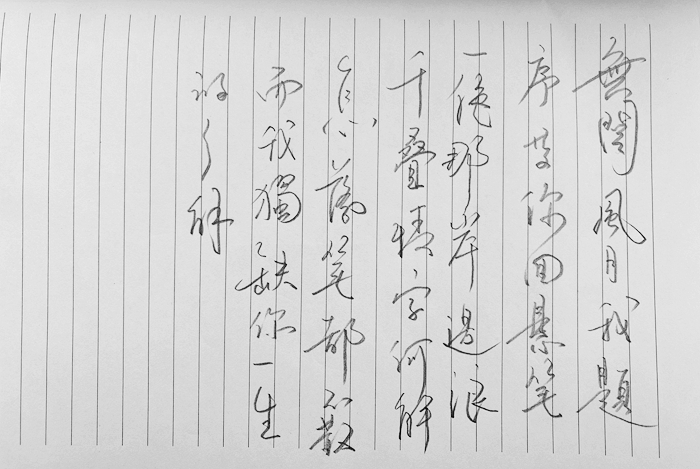 無關風月我題
序等你回懸笔
一绝那岸邊浪
千疊情字何解
怎落笔都不對
而我獨缺你一生
的了解